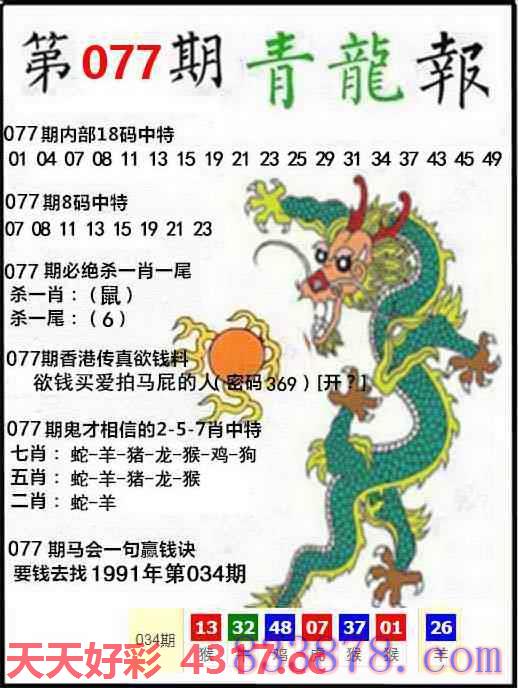 第077期青龍報
077期内部18码中特
01 04 07 08 11 13 15 19 21 23 25 29 31 34 37 43 45 49
077期8码中特
07 08 11 13 15 19 21 23
077期必绝杀一肖一尾
杀一肖：(鼠)
杀一尾：(6)
077期香港传真欲钱料
欲钱买爱拍马屁的人(密码369)[开?]
077期鬼才相信的2-5-7肖中特
七肖：蛇-羊-猪-龙-猴-鸡-狗
五肖：蛇-羊-猪-龙-猴
二肖：蛇-羊
077期马会一句赢钱诀
要钱去找1991年第034期
034期 13 32 48 07 37 01 26
猴 牛 鸡 虎 猴 猴 羊
天天好彩 4317.cc
853878.com